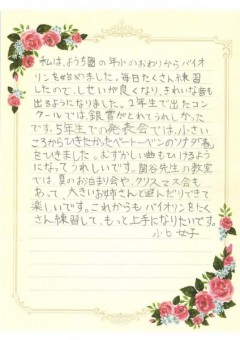 私は、ようち園の年小のおわりからバイオ
リンを始めました。毎日たくさん練習
したので、しせいが良くなり、きれいな音も
出るようになりました。2年生で出たコン
クールでは、銀賞がとれてうれしかった
です。5年生での発表会では、小さい
ころからひきたかったベートーベンのソナタ「春」
をひきました。むずかしい曲もひけるよう
になってうれしいです。関谷先生の教室
では夏のお泊まり会や、クリスマス会も
あって、大きいお姉さんと遊んだりできて
楽しいです。これからもバイオリンをたく
さん練習して、もっと上手になりたいです。
小6 女子